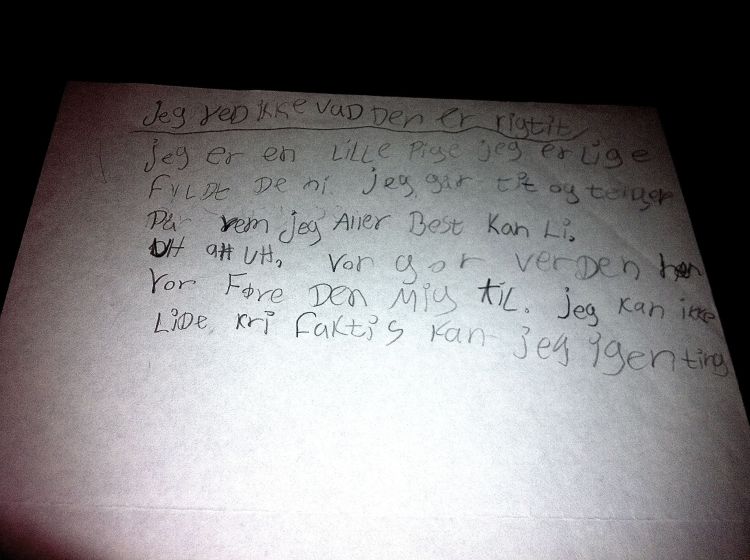 Jeg veD ikke vaD Den er rigtit
jeg er en LiLLe Pige jeg er Lige
FYLDt De ni. Jeg går tit og tenger
På vem jeg Aller Best Kan Li.
UH UH. vor gor verDen hen
Vor Føre Den Mig tiL. jeg Kan ikke
LiDe kri faktis Kan jeg igenting